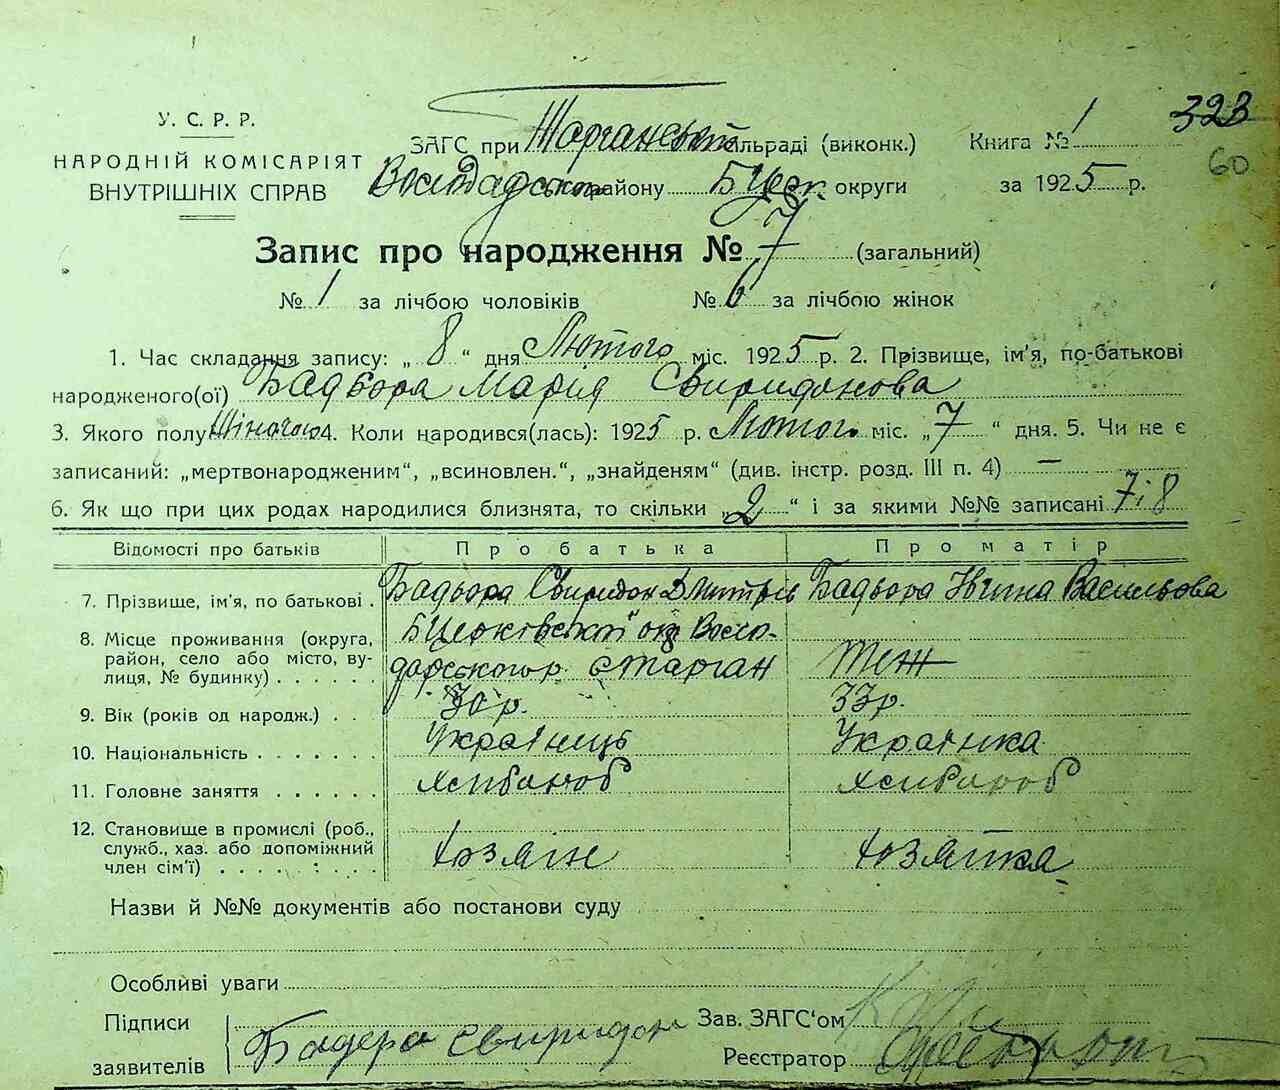 323
60
У. С. Р. Р.
НАРОДНІЙ КОМІСАРІЯТ
ВНУТРІШНІХ СПРАВ
ЗАГС при Тарганській сільраді (виконк.) Книга № 1
Володарського району БЦерк. округи за 1925 р.
Запис про народження № 7 (загальний)
№ 1 за лічбою чоловіків № 6 за лічбою жінок
1. Час складання запису: „ 8 “ дня Лютого міс. 1925 р. 2. Прізвище, ім'я, по-батькові
народженого(ої) Бадьора Марія Свиридонова
3. Якого полу Жіночого 4. Коли народився(лась): 1925 р. Лютого міс. „ 7 “ дня. 5. Чи не є
записаний: „мертвонародженим“, „всиновлен.“, „знайденям“ (див. інстр. розд. III п. 4) —
6. Як що при цих родах народилися близнята, то скільки „ 2 “ і за якими №№ записані 7 і 8
Відомості про батьків Про батька Про матір
7. Прізвище, ім'я, по батькові . Бадьора Свиридон Дмитрів Бадьора Васильова
8. Місце проживання (округа, БЦерківської ок Воло-
район, село або місто, ву- дарського р. с Тарган теж
лиця, № будинку) . . . . . .
9. Вік (років од народж.) . . . 30 р. 33 р.
10. Національність . . . . . . . Українець Українка
11. Головне заняття . . . . . . Хлібороб Хлібороб
12. Становище в промислі (роб.,
служб., хаз. або допоміжний Хозяїн Хозяйка
член сім'ї) . . . . . : . . .
Назви й №№ документів або постанови суду
Особливі уваги
Підписи Зав. ЗАГС'ом
Бадера Свиридон
заявителів Реєстратор